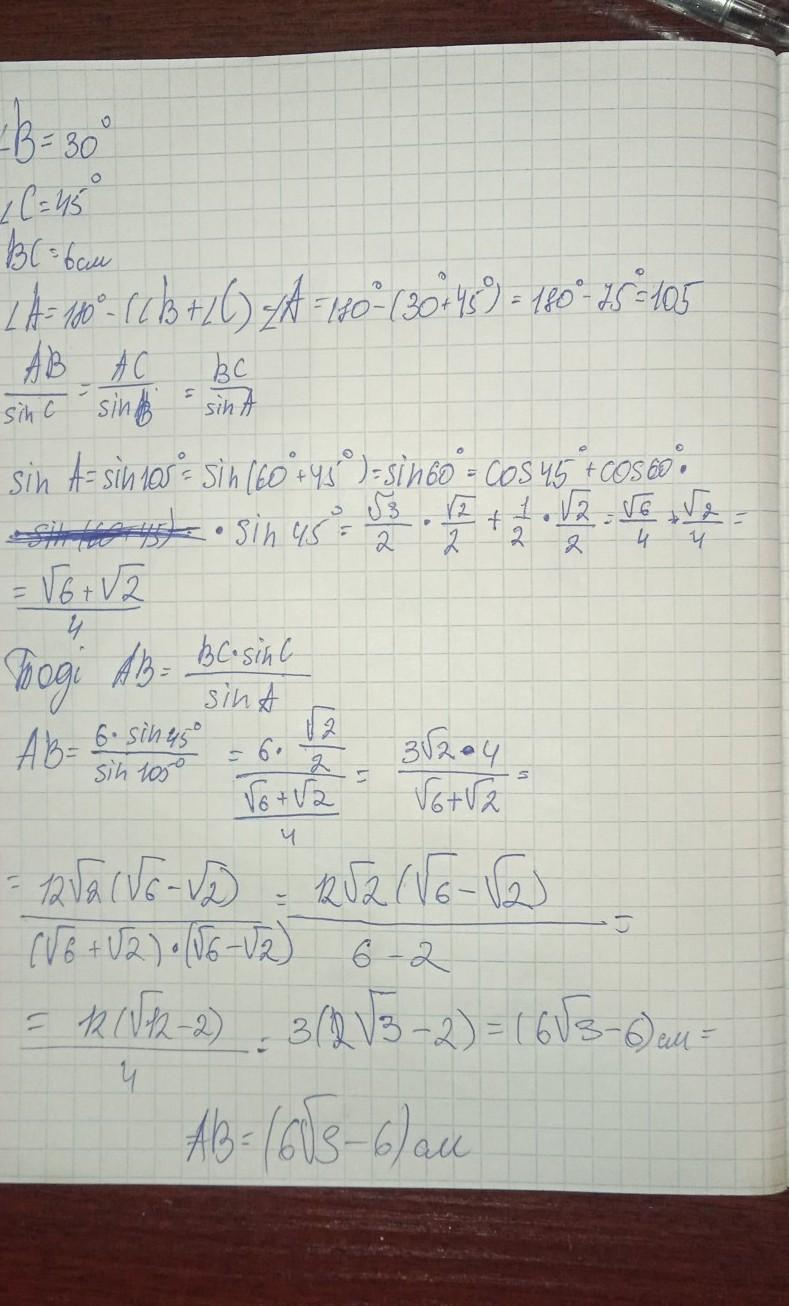 ∠B = 30°
∠C = 45°
BC = 6см
∠A = 180° - (∠B + ∠C) = ∠A = 180° - (30° + 45°) = 180° - 75° = 105
AB/sin C = AC/sin B = BC/sin A
sin A = sin 105° = sin(60° + 45°) = sin 60° = cos 45° + cos 60° •
• sin 45° = √3/2 • √2/2 + 1/2 • √2/2 = √6/4 + √2/4 =
= (√6 + √2)/4
Тоді AB = (BC • sin C)/(sin A)
AB = (6 • sin 45°)/(sin 105°) = (6 • √2/2)/((√6 + √2)/4) = (3√2 • 4)/(√6 + √2) =
= (12√2 (√6 - √2))/((√6 + √2) • (√6 - √2)) = (12√2 (√6 - √2))/(6 - 2) =
= (12(√12 - 2))/4 = 3(2√3 - 2) = (6√3 - 6) см =
AB = (6√3 - 6) см